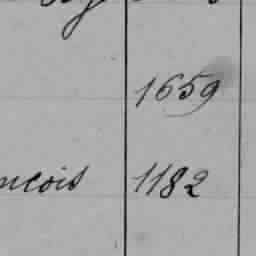 1659
ncois 1182